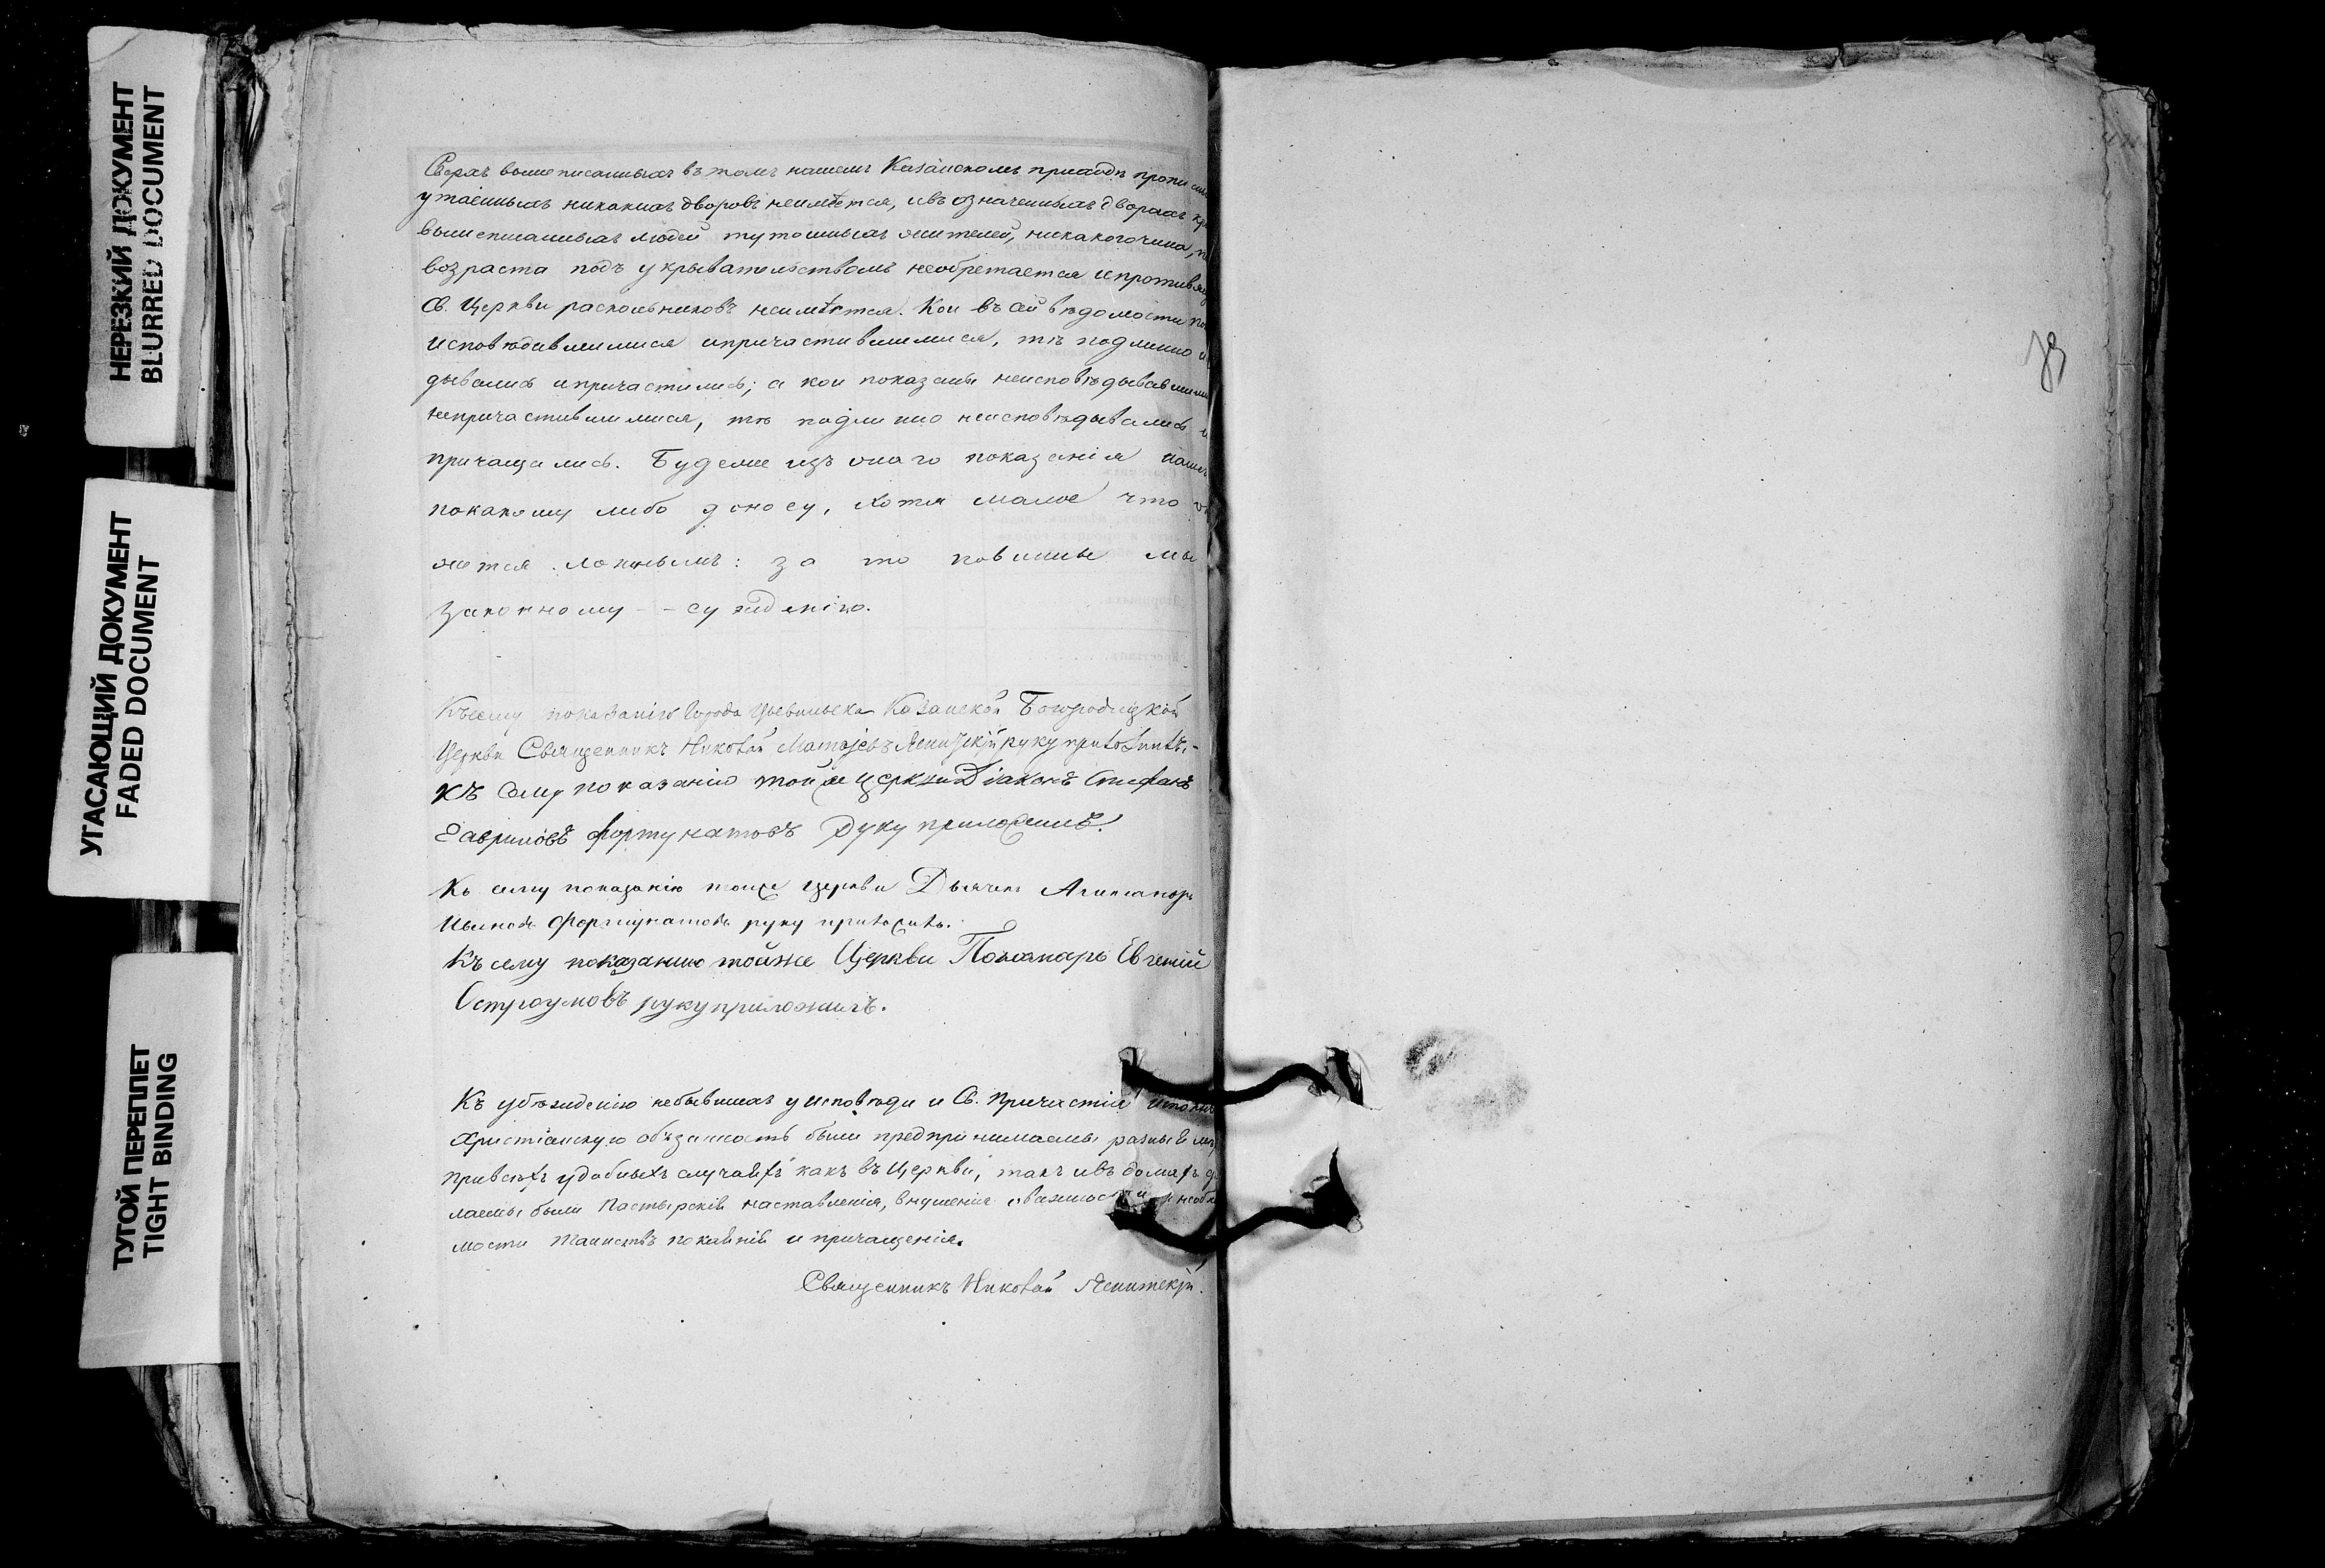 НЕРЕЗКИЙ ДОКУМЕНТ
BLURRED DOCUMENT
УГАСАЮЩИЙ ДОКУМЕНТ
FADED DOCUMENT
ТУГОЙ ПЕРЕПЛЕТ
TIGHT BINDING
Сверхъ вышеписанныхъ въ томъ нашемъ Казанскомъ приходѣ
утаенныхъ никакихъ дворовъ неимѣется, ивъ означенныхъ дворахъ
вышеписанныхъ людей тутошныхъ жителей, никакого чина,
возраста подъ укрывательствомъ необретается и
Св. Церкви раскольниковъ неимѣется. Кои въ сей вѣдомости
исповѣдавшимися ипричастившимися, тѣ подлинно
дывались ипричастились; а кои показаны
непричастившимися, тѣ подлинно неисповѣдывались
причащались. Будеже изъ онаго показанія
покакому либо доносу, хотя малое что
жется ложнымъ: за то повинны мы
законному - - сужденію.
Къ сему показанію Города Цывильска Казанской Богородицкой
Церкви Священникъ Николай руку приложилъ.-
Къ сему показанію тойже церкви Діаконъ Стефанъ
Гавриловъ Фортунатовъ руку приложилъ.
Къ сему показанію тойже церкви Дьячекъ Александръ
Фортунатовъ руку приложилъ.
Къ сему показанию тойже Церкви Пономарь Евгений
Остроумовъ руку приложилъ.
Къ убѣжденію небывшихъ у исповѣди и Св. Причастія
Христіанскую обязанность были предпринимаемы разныя
привсѣхъ удобныхъ случаяхъ какъ въ Церкви, такъ ивъ домахъ
лаемы были Пастырскія наставленія, внушенія оважности и
мости таинствъ покаянія и причащенія.
Священникъ Николай